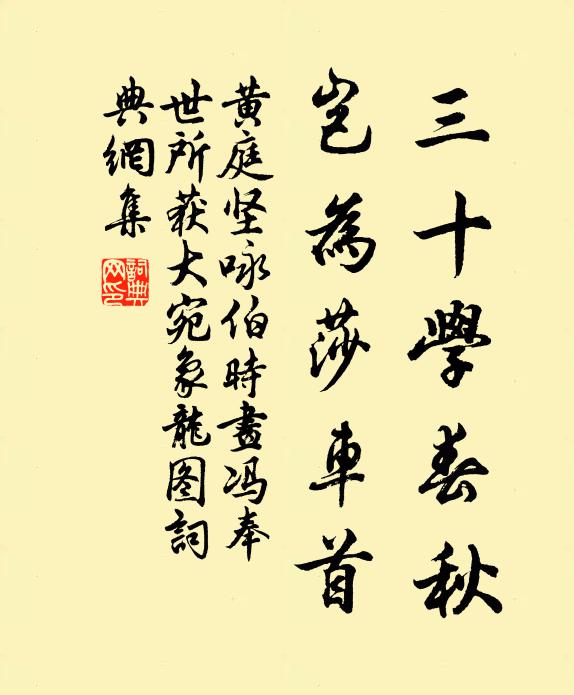 三十學春秋
岂為莎車首
黄庭坚咏伯時畫冯奉
世所获大宛象龍图詞
典網集
詞典
网印